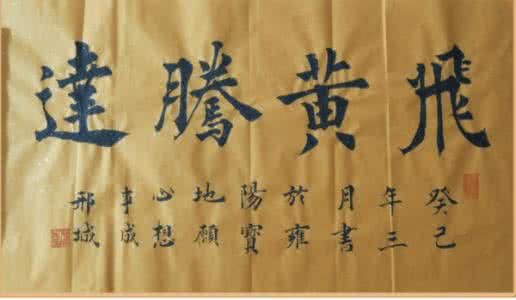 飛黄騰達
癸巳
年三
月書
於雍
陽寳
地願
心想
事成
邢城